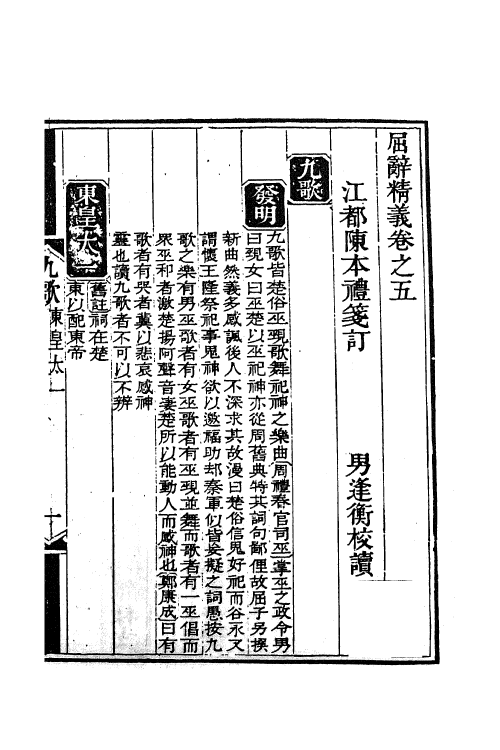 屈辭精義卷之五
江都陳本禮箋訂
男逢衡校讀
九歌
發明
九歌皆楚俗巫覡歌舞祀神之樂曲周禮春官司巫掌巫之政令男
曰覡女曰巫楚以巫祀神亦從周舊典特其詞句鄙俚故屈子另撰
新曲然義多感諷後人不深求其故漫曰楚俗信鬼好祀而谷永又
謂懷王隆祭祀事鬼神欲以邀福助却秦軍似皆妄擬之詞愚按九
歌之樂有男巫歌者有女巫歌者有巫覡並舞而歌者有一巫倡而
眾巫和者激楚揚阿聲音凄楚所以能動人而感神也鄭康成曰有
歌者有哭者冀以悲哀感神
靈也讀九歌者不可以不辨
東皇太一
舊註祠在楚
東以配東帝
九歌
東皇太一